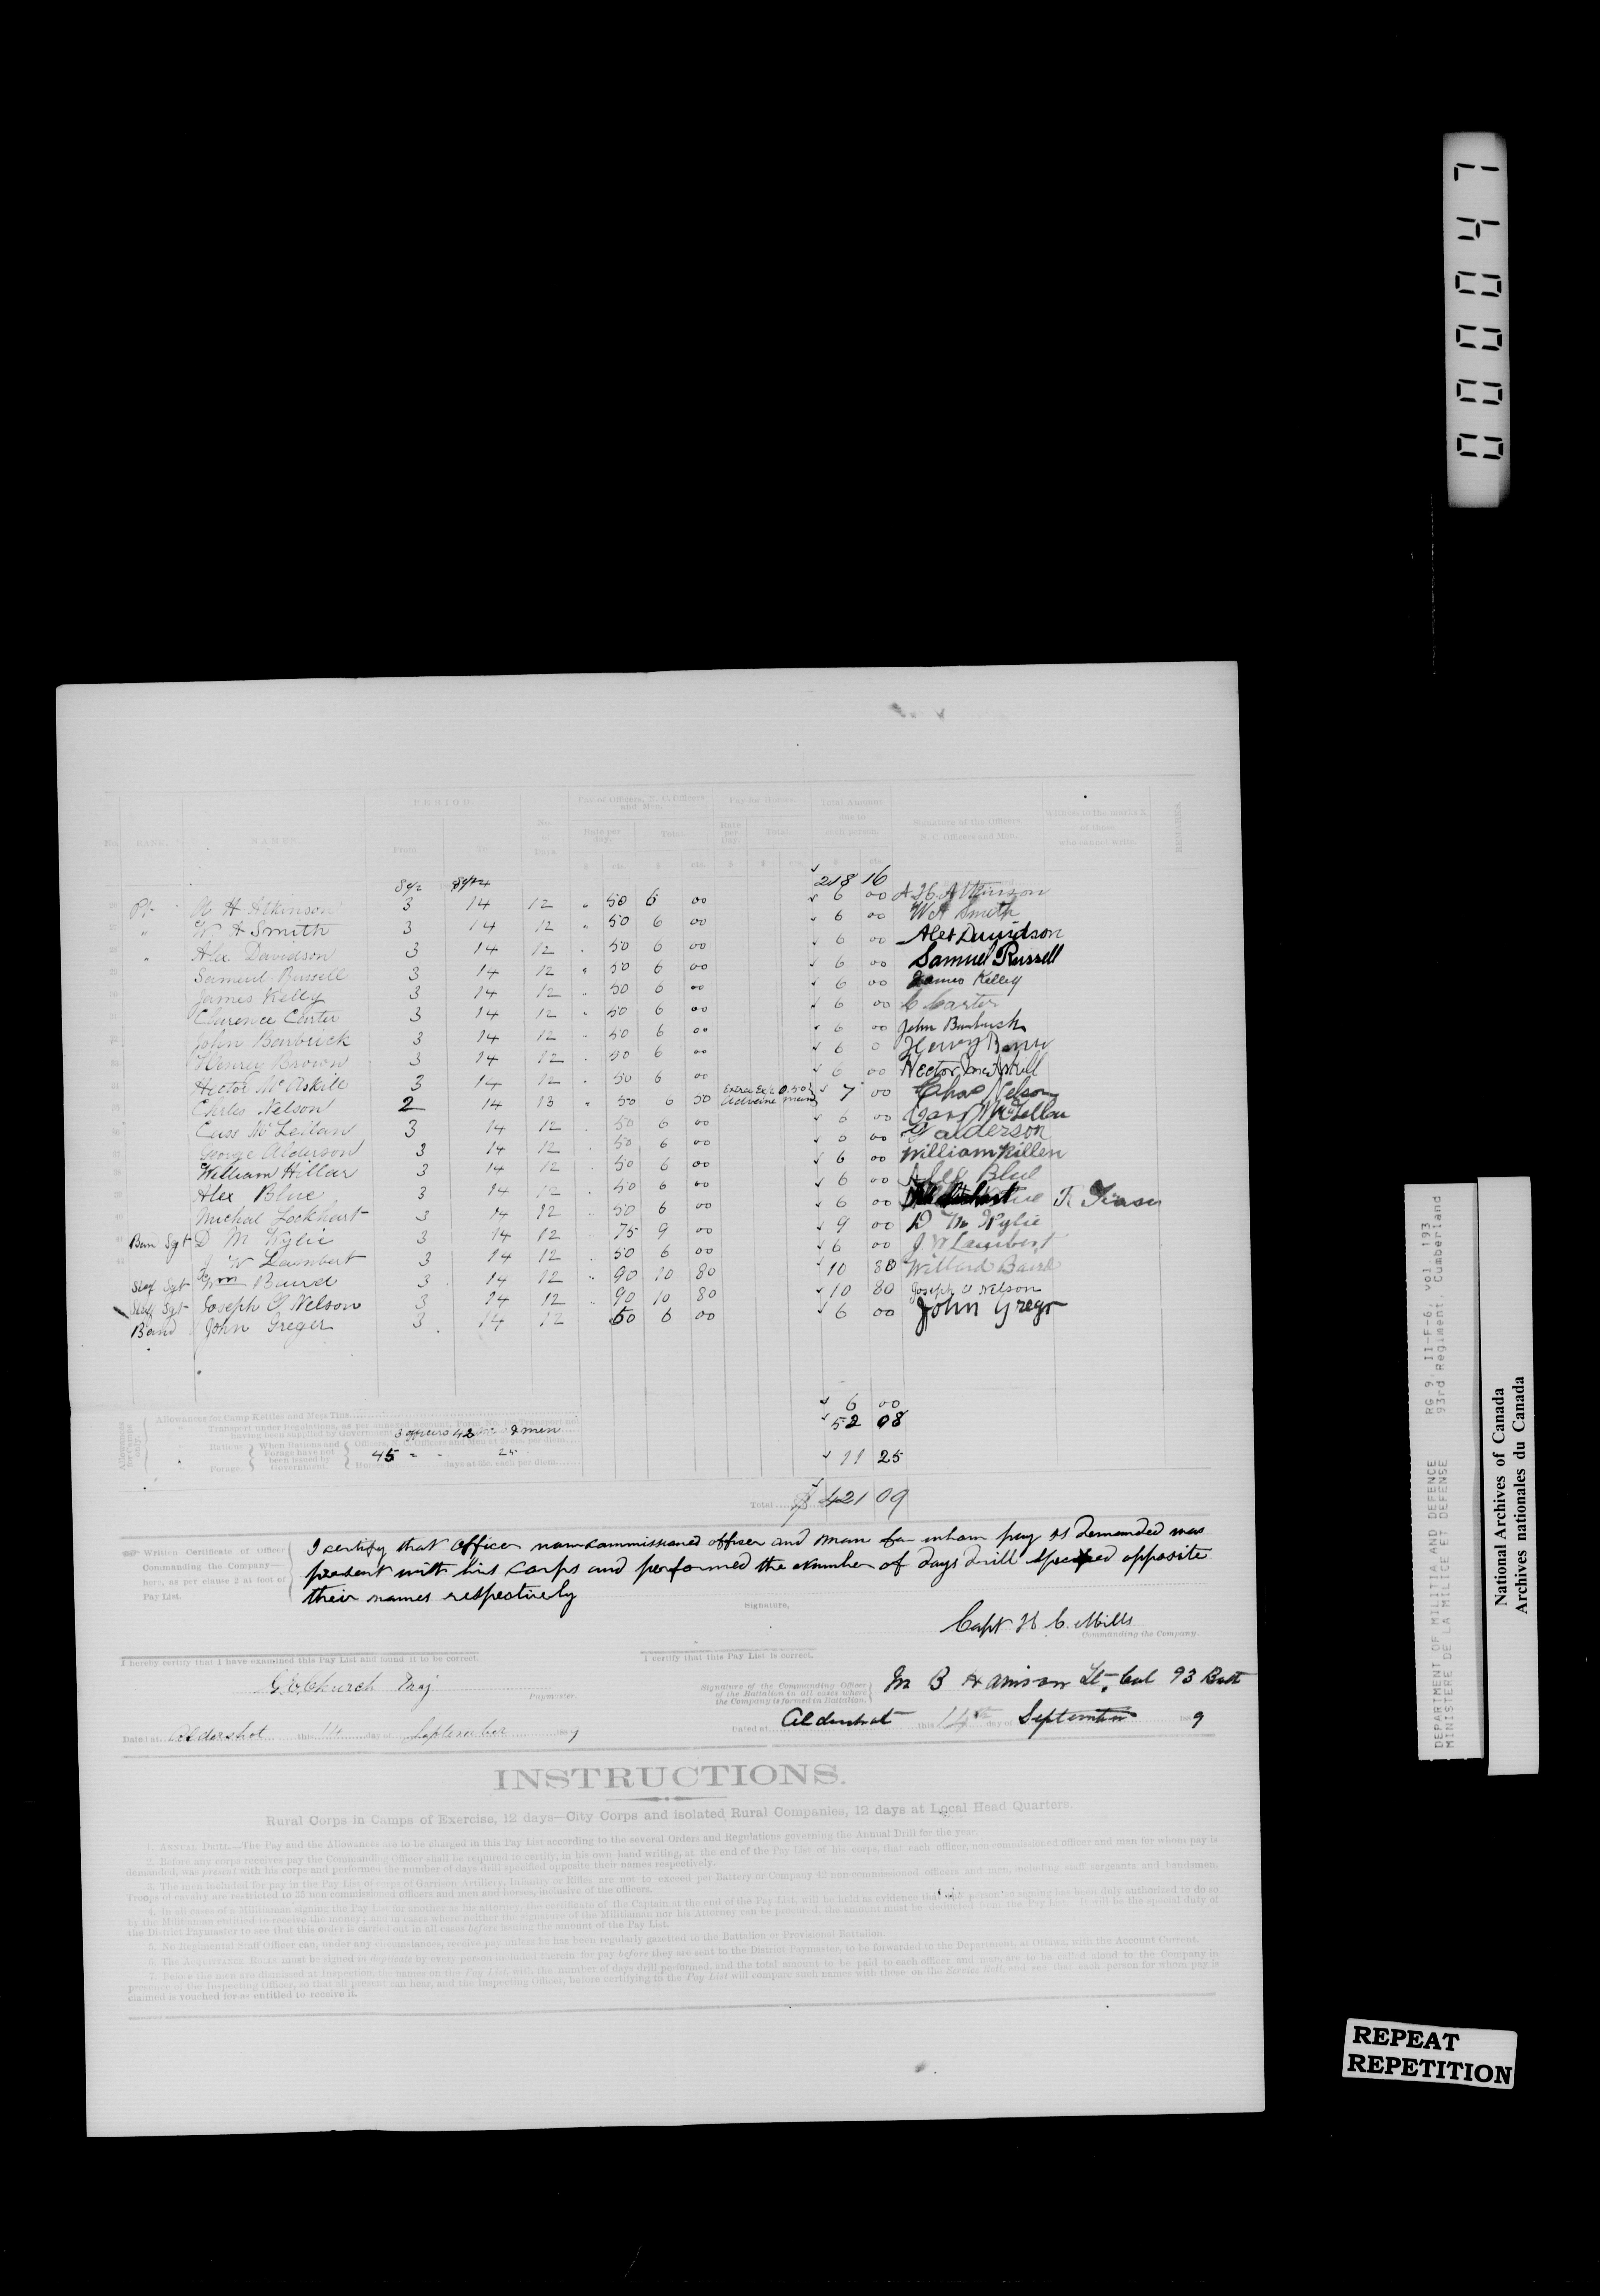 PERIOD.
Pay of Officers, N. C. Officers and Men.
Pay for Horses.
Total Amount due to each person.
Signature of the Officers, N. C. Officers and Men.
Witness to the marks X of those who cannot write.
REMARKS.
No. RANK. NAMES. From To No. of Days Rate per Day. Total. Rate per Day. Total.
$ cts. $ cts. $ $ cts. $ cts.
218 16
Pt H Atkinson 3 14 12 " 50 6 00 6 00 Atkinson
" W A Smith 3 14 12 " 50 6 00 6 00 W A Smith
" Alex Davidson 3 14 12 " 50 6 00 6 00 Alex Davidson
Samuel Russell 3 14 12 " 50 6 00 6 00 Samuel Russell
James Kelly 3 14 12 " 50 6 00 6 00 James Kelley
Clarence Carter 3 14 12 " 50 6 00 6 00 C Carter
John Barbrick 3 14 12 " 50 6 00 6 00 John Barbrick
Henrey Brown 3 14 12 " 50 6 00 6 0 Henry Brown
Hector McAskill 3 14 12 " 50 6 00 6 00 Hector McAskill
Charles Nelson 2 14 13 " 50 6 50 0.50 7 00 Chas Nelson
McLellan 3 14 12 " 50 6 00 6 00 McLellan
George Alderson 3 14 12 " 50 6 00 6 00 G alderson
William Hillar 3 14 12 " 50 6 00 6 00 William Killen
Alex Blue 3 14 12 " 50 6 00 6 00 Alex Blue
Michal Lockhart 3 14 12 " 50 6 00 6 00
Ban Sgt D M Wylie 3 14 12 " 75 9 00 9 00 D M Wylie
J W Lambert 3 14 12 " 50 6 00 6 00 J. W Lambert
Staf Sgt Wm Baird 3 14 12 " 90 10 80 10 80 Willard Baird
Staf Sgt Joseph O Nelson 3 14 12 " 90 10 80 10 80 Joseph O Nelson
Band John Greger 3 14 12 50 6 00 6 00 John Greger
Allowances for Camps only.
Allowances for Camp Kettles and Mess Tins 6 00
" Transport under Regulations, as per annexed account, Form No. Transport not having been supplied by Government 52 08
3 officers 42 men
Rations When Rations and Forage have not been issued by Government.
45 25 11 25
Forage Horses days at 25c. each per diem
Total $ 421 09
Written Certificate of Officer Commanding the Company—here, as per clause 2 at foot of Pay List.
I certify that officer noncommissioned officer and man for whom pay is demanded was
present with his corps and performed the number of days drill specified opposite
their names respectively
Signature,
Capt H C. Mills
Commanding the Company.
I hereby certify that I have examined this Pay List and found it to be correct.
G W Church Maj
Paymaster.
Dated at Aldershot this 14 day of September 1889
I certify that this Pay List is correct.
Signature of the Commanding Officer of the Battalion in all cases where the Company is formed in Battalion.
M B Harrison Lt. Col 93 Batt
Dated at Aldershot this 14th day of September 1889
INSTRUCTIONS.
Rural Corps in Camps of Exercise, 12 days—City Corps and isolated Rural Companies, 12 days at Local Head Quarters.
1. ANNUAL DRILL.—The Pay and the Allowances are to be charged in this Pay List according to the several Orders and Regulations governing the Annual Drill for the year.
2. Before any corps receives pay the Commanding Officer shall be required to certify, in his own hand writing, at the end of the Pay List of his corps, that each officer, non-commissioned officer and men for whom pay is
demanded, was present with his corps and performed the number of days drill specified opposite their names respectively.
3. The men included for pay in the Pay List of corps of Garrison Artillery, Infantry or Rifles are not to exceed per Battery or Company 42 non-commissioned officers and men, including staff sergeants and bandsmen.
Troops of cavalry are restricted to 35 non-commissioned officers and men and horses, inclusive of the officers.
4. In all cases of a Militiaman signing the Pay List for another as his attorney, the certificate of the Captain at the end of the Pay List, will be held as evidence that such person so signing has been duly authorized to do so
by the Militiaman entitled to receive the money; and in cases where neither the signature of the Militiaman nor his Attorney can be procured, the amount must be deducted from the Pay List. It will be the special duty of
the District Paymaster to see that this order is carried out in all cases before issuing the amount of the Pay List.
5. No Regimental Staff Officer can, under any circumstances, receive pay unless he has been regularly gazetted to the Battalion or Provisional Battalion.
6. The ACQUITTANCE ROLLS must be signed in duplicate by every person included therein for pay before they are sent to the District Paymaster, to be forwarded to the Department, at Ottawa, with the Account Current.
7. Before the men are dismissed at Inspection, the names on the Pay List, with the number of days drill performed, and the total amount to be paid to each officer and man, are to be called aloud to the Company in
presence of the Inspecting Officer, so that all present can hear, and the Inspecting Officer, before certifying to the Pay List will compare such names with those on the Service Roll, and see that each person for whom pay is
claimed is vouched for as entitled to receive it.
DEPARTMENT OF MILITIA AND DEFENCE RG 9, II-F-6, vol. 193
MINISTERE DE LA MILICE ET DEFENSE 93rd Regiment, Cumberland
National Archives of Canada
Archives nationales du Canada
REPEAT
REPETITION